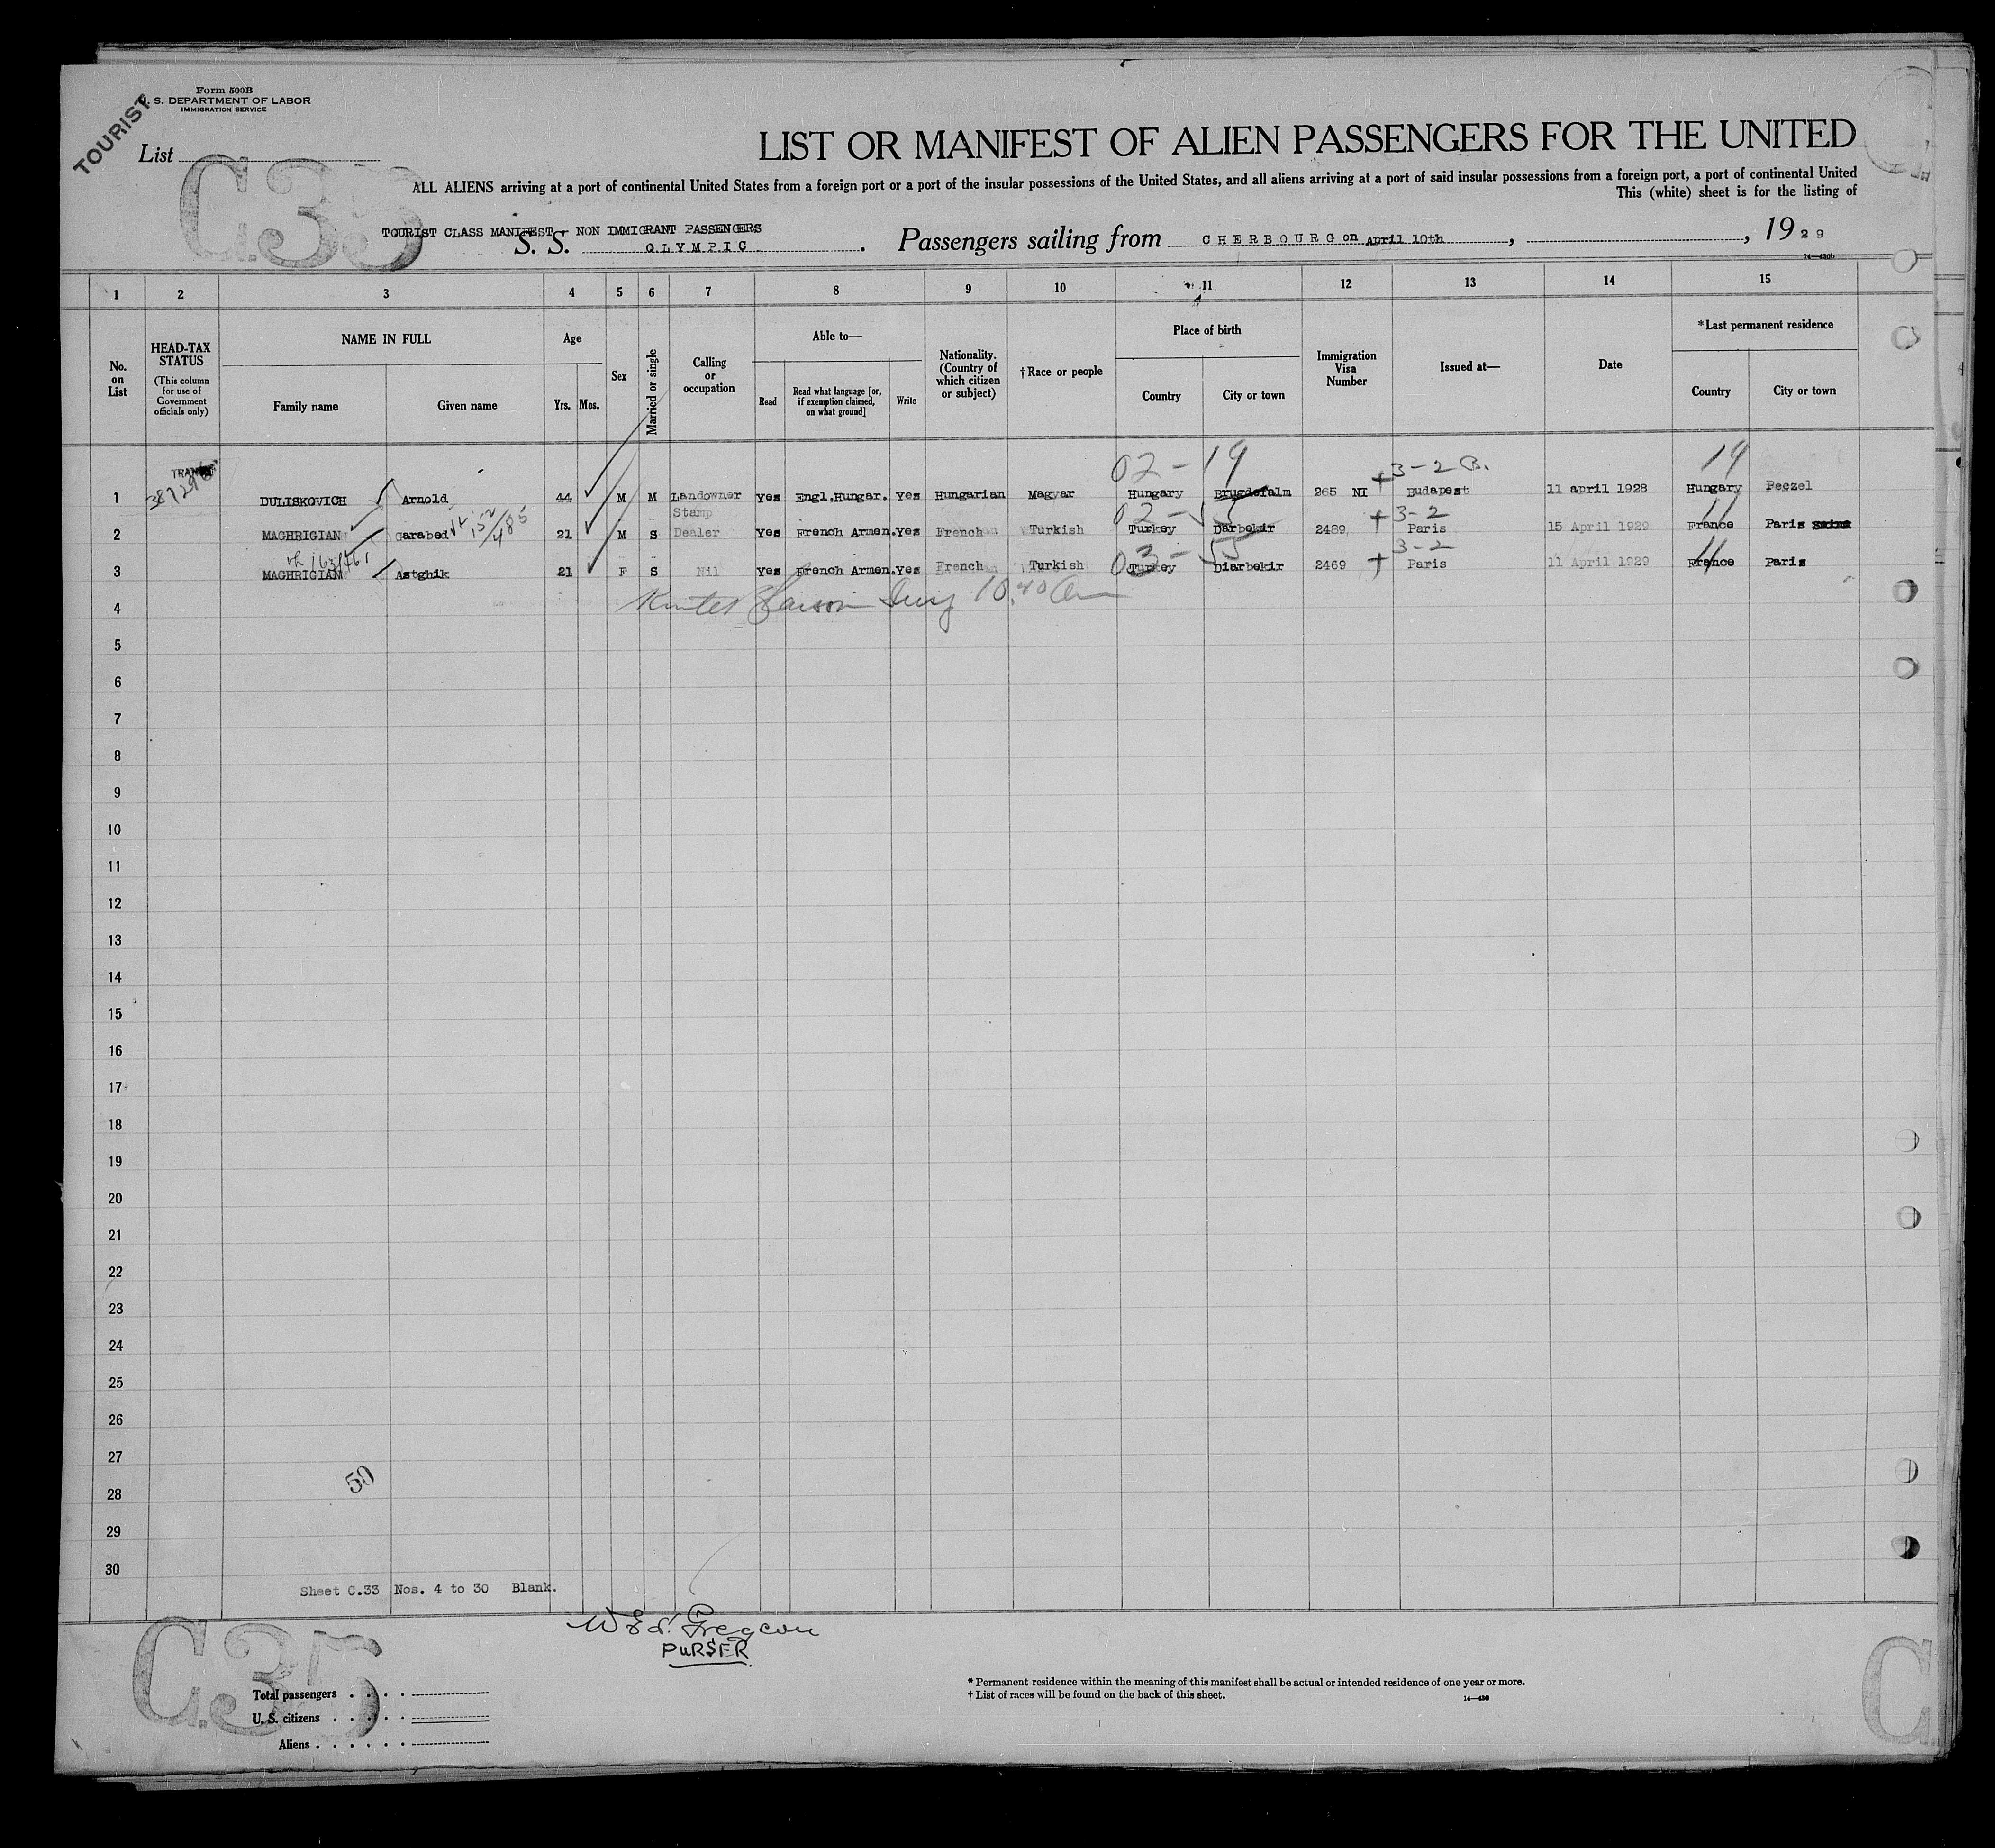 Form 500B
U. S. DEPARTMENT OF LABOR
IMMIGRATION SERVICE
TOURIST
List
C.35
LIST OR MANIFEST OF ALIEN PASSENGERS FOR THE UNITED
ALL ALIENS arriving at a port of continental United States from a foreign port or a port of the insular possessions of the United States, and all aliens arriving at a port of said insular possessions from a foreign port, a port of continental United
This (white) sheet is for the listing of
TOURIST CLASS MANIFEST - NON IMMIGRANT PASSENGERS
S. S. OLYMPIC. Passengers sailing from CHERBOURG on April 10th, , 1929
14-430b
1 2 3 4 5 6 7 8 9 10 11 12 13 14 15
No. on List
HEAD-TAX STATUS
(This column for use of Government officials only)
NAME IN FULL
Family name Given name
Age
Yrs. Mos.
Sex
Married or single
Calling or occupation
Able to—
Read Read what language [or, if exemption claimed, on what ground] Write
Nationality. (Country of which citizen or subject)
†Race or people
Place of birth
Country City or town
Immigration Visa Number
Issued at—
Date
*Last permanent residence
Country City or town
02-19 3-2 B. 19
1 DULISKOVICH Arnold 44 M M Landowner Yes Engl.Hungar. Yes Hungarian Magyar Hungary 265 NI Budapest 11 april 1928 Hungary Peczel
02-55 3-2 11
2 MAGHRIGIAN Garabed 21 M S Stamp Dealer Yes French Armen. Yes French Turkish Turkey Darbekir 2489 Paris 15 April 1929 France Paris
03-55 3-2 11
3 MAGHRIGIAN Astghik 21 F S Nil Yes French Armen. Yes French Turkish Turkey Diarbekir 2469 Paris 11 April 1929 France Paris
4
5
6
7
8
9
10
11
12
13
14
15
16
17
18
19
20
21
22
23
24
25
26
27
50
28
29
30
Sheet C.33 Nos. 4 to 30 Blank.
PURSER
C.35
Total passengers . . . .
U. S. citizens . . . . .
Aliens . . . . . .
* Permanent residence within the meaning of this manifest shall be actual or intended residence of one year or more.
† List of races will be found on the back of this sheet.
14-430